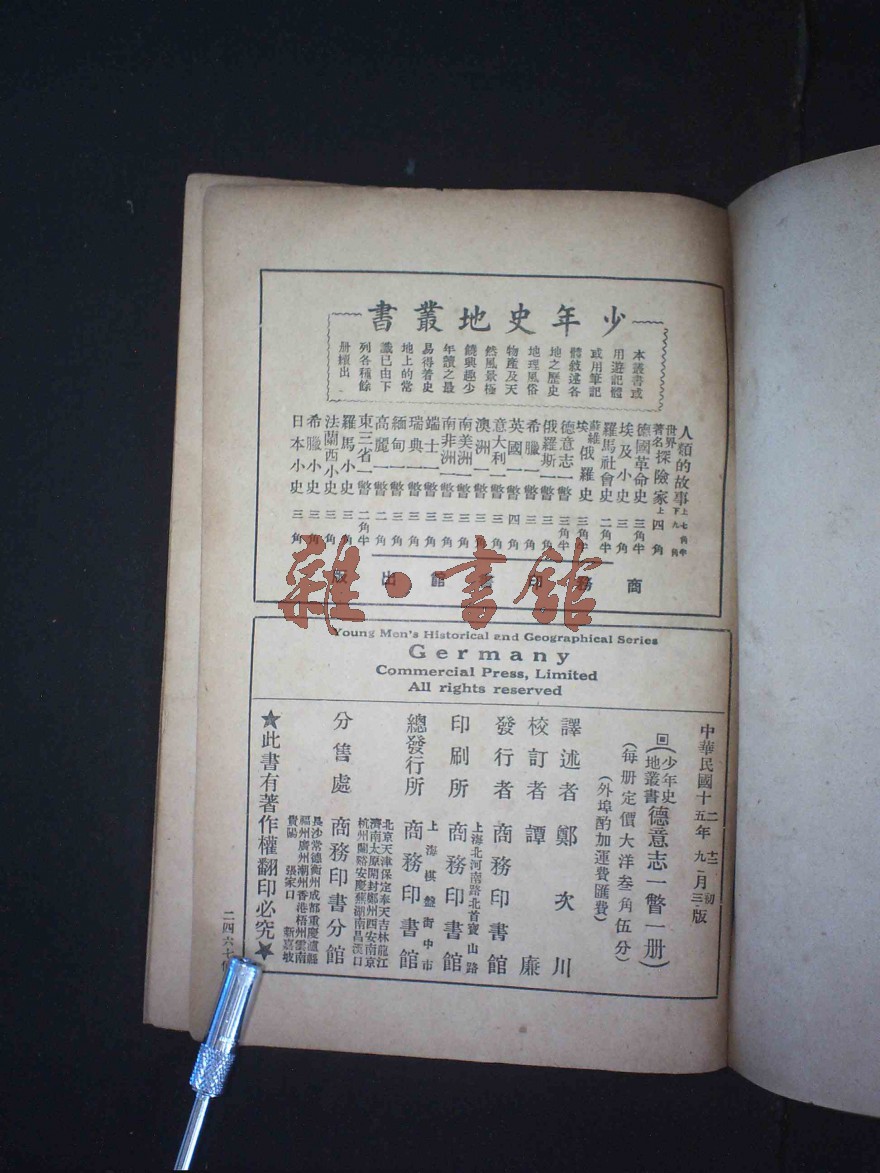 少年史地叢書
本叢書或
用遊記體
或用筆記
體敘述各
地之歷史
地理風俗
物產及天
然風景極
饒興趣少
年讀之最
易得着史
地上的常
識已由下
列各種餘
册續出
人類的故事 上 七角半 下 九角
世界著名探險家 上 四角
德國革命史 三角半
埃及小史 三角
羅馬社會史 二角半
蘇維埃俄羅史 三角半
德意志一瞥 三角半
俄羅斯一瞥 三角
希臘一瞥 三角
英國一瞥 四角
意大利一瞥 三角
澳洲一瞥 三角
南美洲一瞥 三角
南非洲一瞥 三角
瑞士一瞥 三角
瑞典一瞥 三角
緬甸一瞥 三角
高麗一瞥 二角
東三省一瞥 二角半
羅馬小史 三角
法蘭西小史 三角
希臘小史 三角
日本小史 三角
商務印書館出版
雜·書館
Young Men's Historical and Geographical Series
Germany
Commercial Press, Limited
All rights reserved
中華民國十二年十二月初版
五年九月三版
(少年史地叢書)德意志一瞥一册)
(每册定價大洋叁角伍分)
(外埠酌加運費匯費)
譯述者 鄭次川
校訂者 譚廉
發行者 商務印書館
印刷所 上海北河南路北首寶山路 商務印書館
總發行所 上海棋盤街中市 商務印書館
分售處 商務印書分館
北京天津保定奉天吉林龍江
濟南太原開封鄭州西安南京
杭州蘭谿安慶蕪湖南昌漢口
長沙常德衡州成都重慶瀘縣
福州廣州潮州香港梧州雲南
貴陽 張家口 新嘉坡
★此書有著作權翻印必究★
二四六七